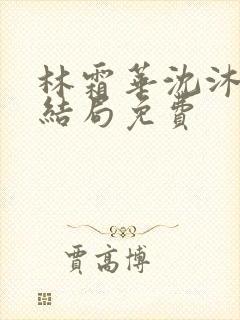 林霜華沈沐
結局免費
賈高博